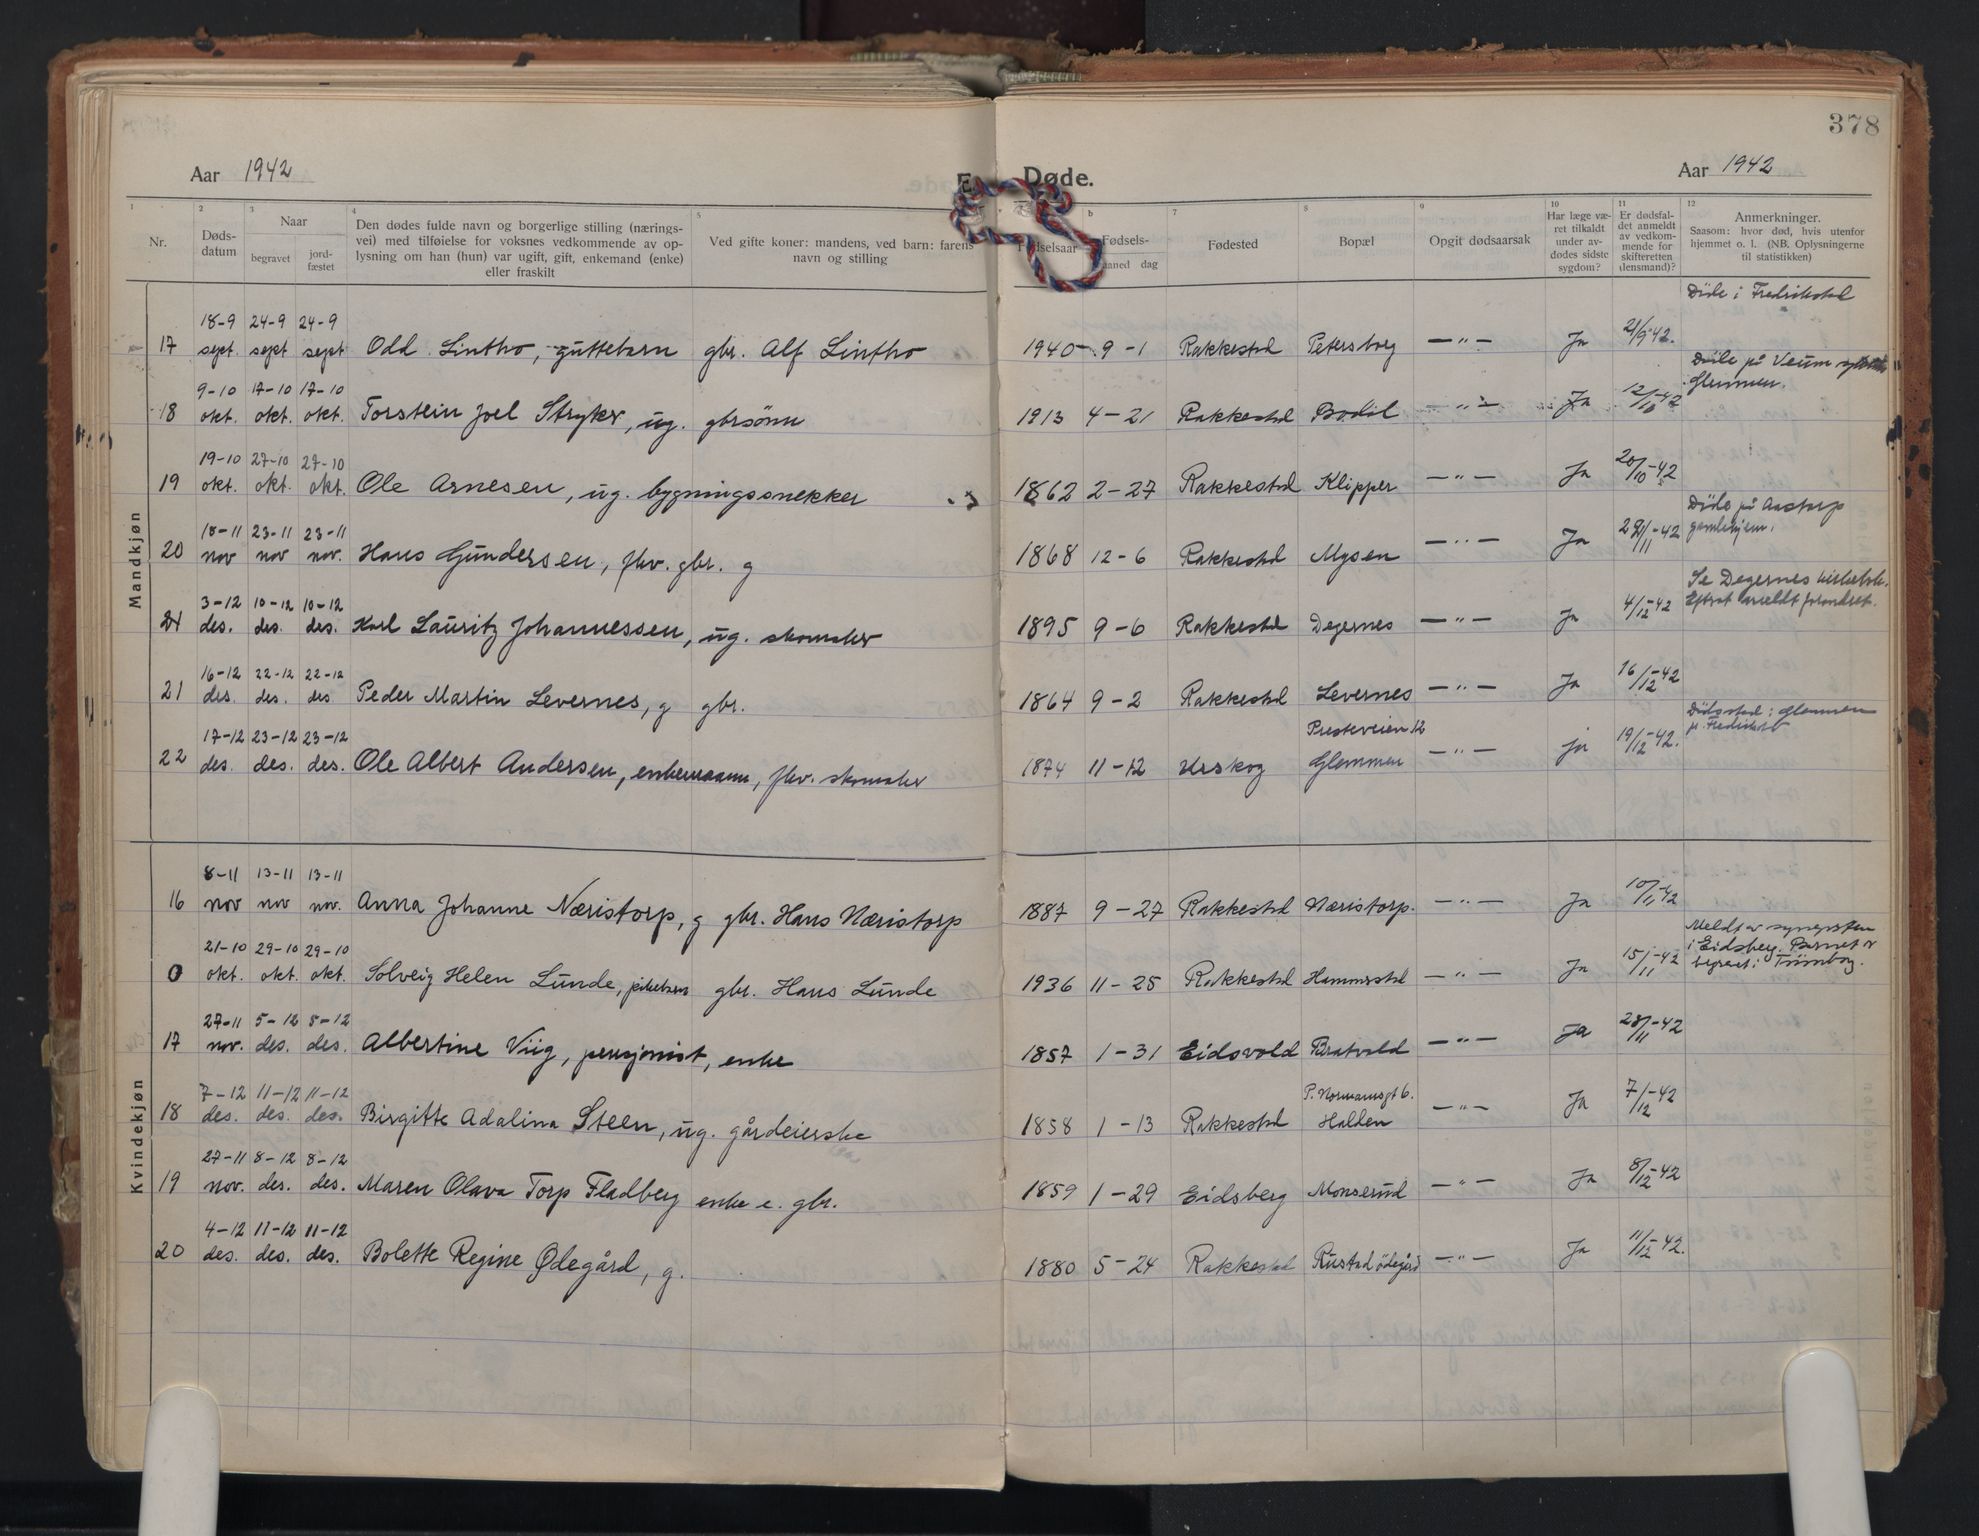 378
Aar 1942
E.
Døde.
Aar 1942
1 2 3 4 5 6 7 8 9 10 11 12
Nr.
Døds-
datum
Naar
begravet
jord-
fæstet
Den dødes fulde navn og borgerlige stilling (nærings-
vei) med tilføielse for voksnes vedkommende av op-
lysning om han (hun) var ugift, gift, enkemand (enke)
eller fraskilt
Ved gifte koner: mandens, ved barn: farens
navn og stilling
Fødselsaar
Fødsels-
maaned dag
Fødested
Bopæl
Opgit dødsaarsak
Har læge væ-
ret tilkaldt
under av-
dødes sidste
sygdom?
Er dødsfal-
det anmeldt
av vedkom-
mende for
skifteretten
(lensmand)?
Anmerkninger.
Saasom: hvor død, hvis utenfor
hjemmet o. l. (NB. Oplysningerne
til statistikken)
Mandkjøn
18-9 24-9 24-9 Døde i Fredrikstad
17 sept. sept sept Odd Lintho, guttebarn gbr. Alf Lintho 1940 9-1 Rakkestad Petersborg — " — Ja 21/9-42.
9-10 17-10 17-10 Døde på Veum
Glemmen.
18 okt. okt. okt. Torstein Joel Stryker, ug. gbrsønn 1913 4-21 Rakkestad Bodal — " — Ja 12/10-42
19-10 27-10 27-10
19 okt. okt. okt. Ole Arnesen, ug. bygningssnekker 1862 2-27 Rakkestad Klipper — " — Ja 20/10-42
18-11 23-11 23-11 Døde på Aastorp
gamlehjem.
20 nov nov nov. Hans Gundersen, fhv. gbr. g 1868 12-6 Rakkestad Mysen — " — Ja /11-42
3-12 10-12 10-12 Se Degernes kirkebok.
Efterat anmeldt forandret.
21 des. des. des. Karl Lauritz Johannessen, ug. skomaker 1895 9-6 Rakkestad Degernes — " — Ja 4/12-42
16-12 22-12 22-12
21 des. des. des Peder Martin Levernes, g gbr. 1864 9-2 Rakkestad Levernes — " — Ja 16/12-42
17-12 23-12 23-12 Presteveien 12 Dødssted: Glemmen
pr. Fredrikstad
22 des. des. des. Ole Albert Andersen, enkemann, fhv. skomaker 1874 11-12 Urskog Glemmen — " — ja 19/12-42.
Kvindekjøn
8-11 13-11 13-11
16 nov nov nov. Anna Johanne Næristorp, g gbr. Hans Næristorp 1887 9-27 Rakkestad Næristorp. — " — Ja 10/11-42
21-10 29-10 29-10 Meldt av sognepresten
i Eidsberg. Barnet er
begravet i Trømborg.
0 okt. okt. okt. Solveig Helen Lunde, pikebarn gbr. Hans Lunde 1936 11-25 Rakkestad Hammerstad — " — Ja 15/11-42
27-11 5-12 5-12
17 nov. des. des. Albertine Viig, pensjonist, enke 1857 1-31 Eidsvold Bratvold — " — Ja 28/11-42
7-12 11-12 11-12 P. Normannsgt 6.
18 des. des. des. Birgitte Adalina Steen, ug. gårdeierske 1858 1-13 Rakkestad Halden — " — Ja 7/12-42
27-11 8-12 8-12
19 nov. des. des. Maren Olava Torp Fladberg enke e. gbr. 1859 1-29 Eidsberg Monserud — " — Ja 8/12-42
4-12 11-12 11-12
20 des. des. des. Bolette Regine Ødegård, g. 1880 5-24 Rakkestad Rustad ødegård — " — Ja 11/12-42.